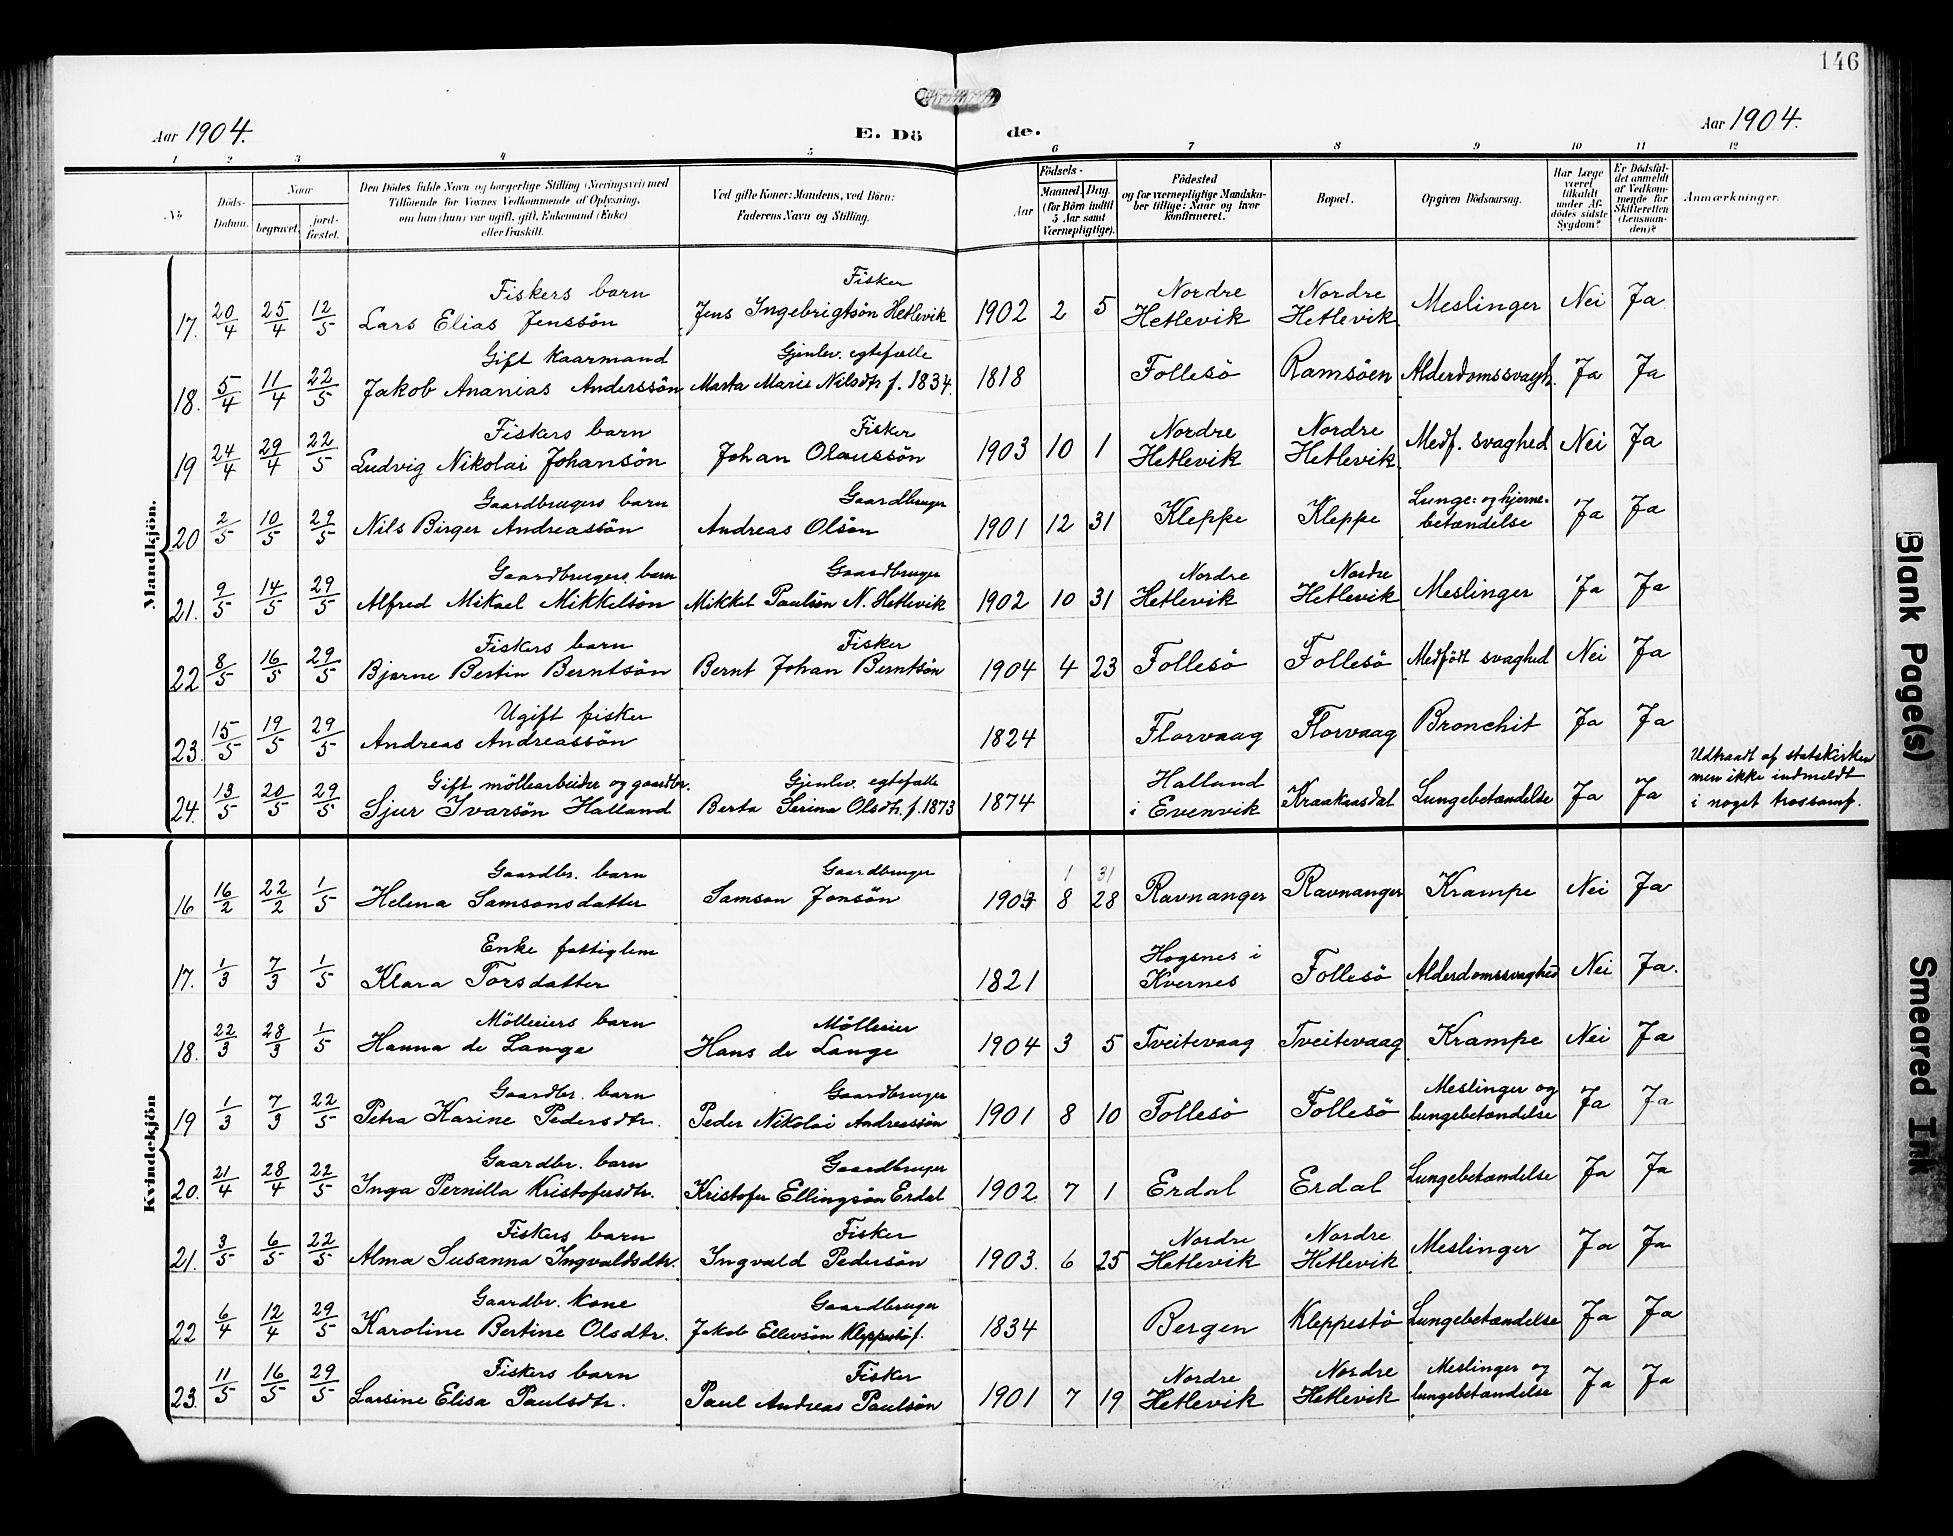 146
Aar 1904.
E. Dö de.
Aar 1904.
1 2 3 4 5 6 7 8 9 10 11 12
No
Döds-Datum.
Naar
begravet.
jord-fæstet.
Den Dödes fulde Navn og borgerlige Stilling (Næringsvei) med
Tilföiende for Voxnes Vedkommende af Oplysning,
om han (hun) var ugift, gift, Enkemand (Enke)
eller fraskilt.
Ved gifte Koner: Mandens, ved Börn:
Faderens Navn og Stilling.
Födsels-
Aar
Maaned. Dag.
(for Börn indtil
5 Aar samt
Værnepligtige).
Födested
og for værnepligtige Mandska-
ber tillige: Naar og hvor
konfirmeret.
Bopæl.
Opgiven Dödsaarsag.
Har Læge
været
tilkaldt
under Af-
dödes sidste
Sygdom?
Er Dödsfal-
det anmeldt
af Vedkom-
mende for
Skifteretten
(Lensman-
den)?
Anmærkninger.
Mandkjön.
Fiskers barn Fisker Nordre Nordre
17. 20/4 25/4 12/5 Lars Elias Jenssön Jens Ingebrigtsön Hetlevik 1902 2 5 Hetlevik Hetlevik Meslinger Nei Ja
Gift kaarmand Gjenlev. egtefælle
18. 5/4 11/4 22/5 Jakob Ananias Anderssön Marta Marie Nilsdtr f. 1834. 1818 Follesö Ramsöen Alderdomssvagh. Ja Ja
Fiskers barn Fisker Nordre Nordre
19 24/4 29/4 22/5 Ludvig Nikolai Johansön Johan Olaussön 1903 10 1 Hetlevik Hetlevik Medf. svaghed Nei Ja
Gaardbrugers barn Gaardbruger Lunge: og hjerne-
20 2/5 10/5 29/5 Nils Birger Andreassön Andreas Olsön 1901 12 31 Kleppe Kleppe betændelse Ja Ja
Gaardbrugers barn Gaardbruger Nordre Nordre
21. 9/5 14/5 29/5 Alfred Mikael Mikkelsön Mikkel Paulsen N. Hetlevik 1902 10 31 Hetlevik Hetlevik Meslinger Ja Ja
Fiskers barn Fisker
22 8/5 16/5 29/5 Bjarne Bertin Berntsön Bernt Johan Berntsön 1904 4 23 Follesö Follesö Medfödt svaghed Nei Ja
Ugift fisker
23. 15/5 19/5 29/5 Andreas Andreassön 1824 Florvaag Florvaag Bronchit Ja Ja
Gift möllearbeider og gaardbr. Gjenlev. egtefælle Halland Udtraadt af statskirken
men ikke indmeldt
24. 13/5 20/5 29/5 Sjur Ivarsön Halland Berta Serina Olsdtr. f. 1873 1874 i Evenvik Kraakaasdal Lungebetændelse Ja Ja i noget trossamf.
Kvindekjön
Gaardbr. barn Gaardbruger 1 31
16 16/2 22/2 1/5 Helena Samsonsdatter Samson Jonsön 1904 8 28 Ravnanger Ravnanger Krampe Nei Ja
Enke fattiglem Hogsnes i
17. 1/3 7/3 1/5 Klara Torsdatter 1821 Kvernes Follesö Alderdomssvaghed Nei Ja.
Mölleeiers barn Mölleeier
18. 22/3 28/3 1/5 Hanna de Lange Hans de Lange 1904 3 5 Tveitevaag Tveitevaag Krampe Nei Ja
Gaardbr. barn Gaardbruger Meslinger og
19 1/3 7/3 22/5 Petra Karine Pedersdtr. Peder Nikolai Andreassön 1901 8 10 Follesö Follesö lungebetændelse Ja Ja
Gaardbr. barn Gaardbruger
20. 21/4 28/4 22/5 Inga Pernilla Kristofersdtr. Kristofer Ellingsön Erdal 1902 7 1 Erdal Erdal Lungebetændelse Ja Ja
Fiskers barn Fisker Nordre Nordre
21. 3/5 6/5 22/5 Alma Susanna Ingvaldsdtr. Ingvald Pedersön 1903. 6 25 Hetlevik Hetlevik Meslinger Ja Ja
Gaardbr. kone Gaardbruger
22 6/4 12/4 29/5 Karoline Bertine Olsdtr. Jakob Ellevsön 1834 Bergen Kleppestö Lungebetændelse Ja Ja
Fiskers barn Fisker Nordre Nordre Meslinger og
23. 11/5 16/5 29/5 Larsine Elisa Paulsdtr. Paul Andreas Paulsön 1901 7 19 Hetlevik Hetlevik lungebetændelse Ja Ja
Blank Page(s)
Smeared Ink